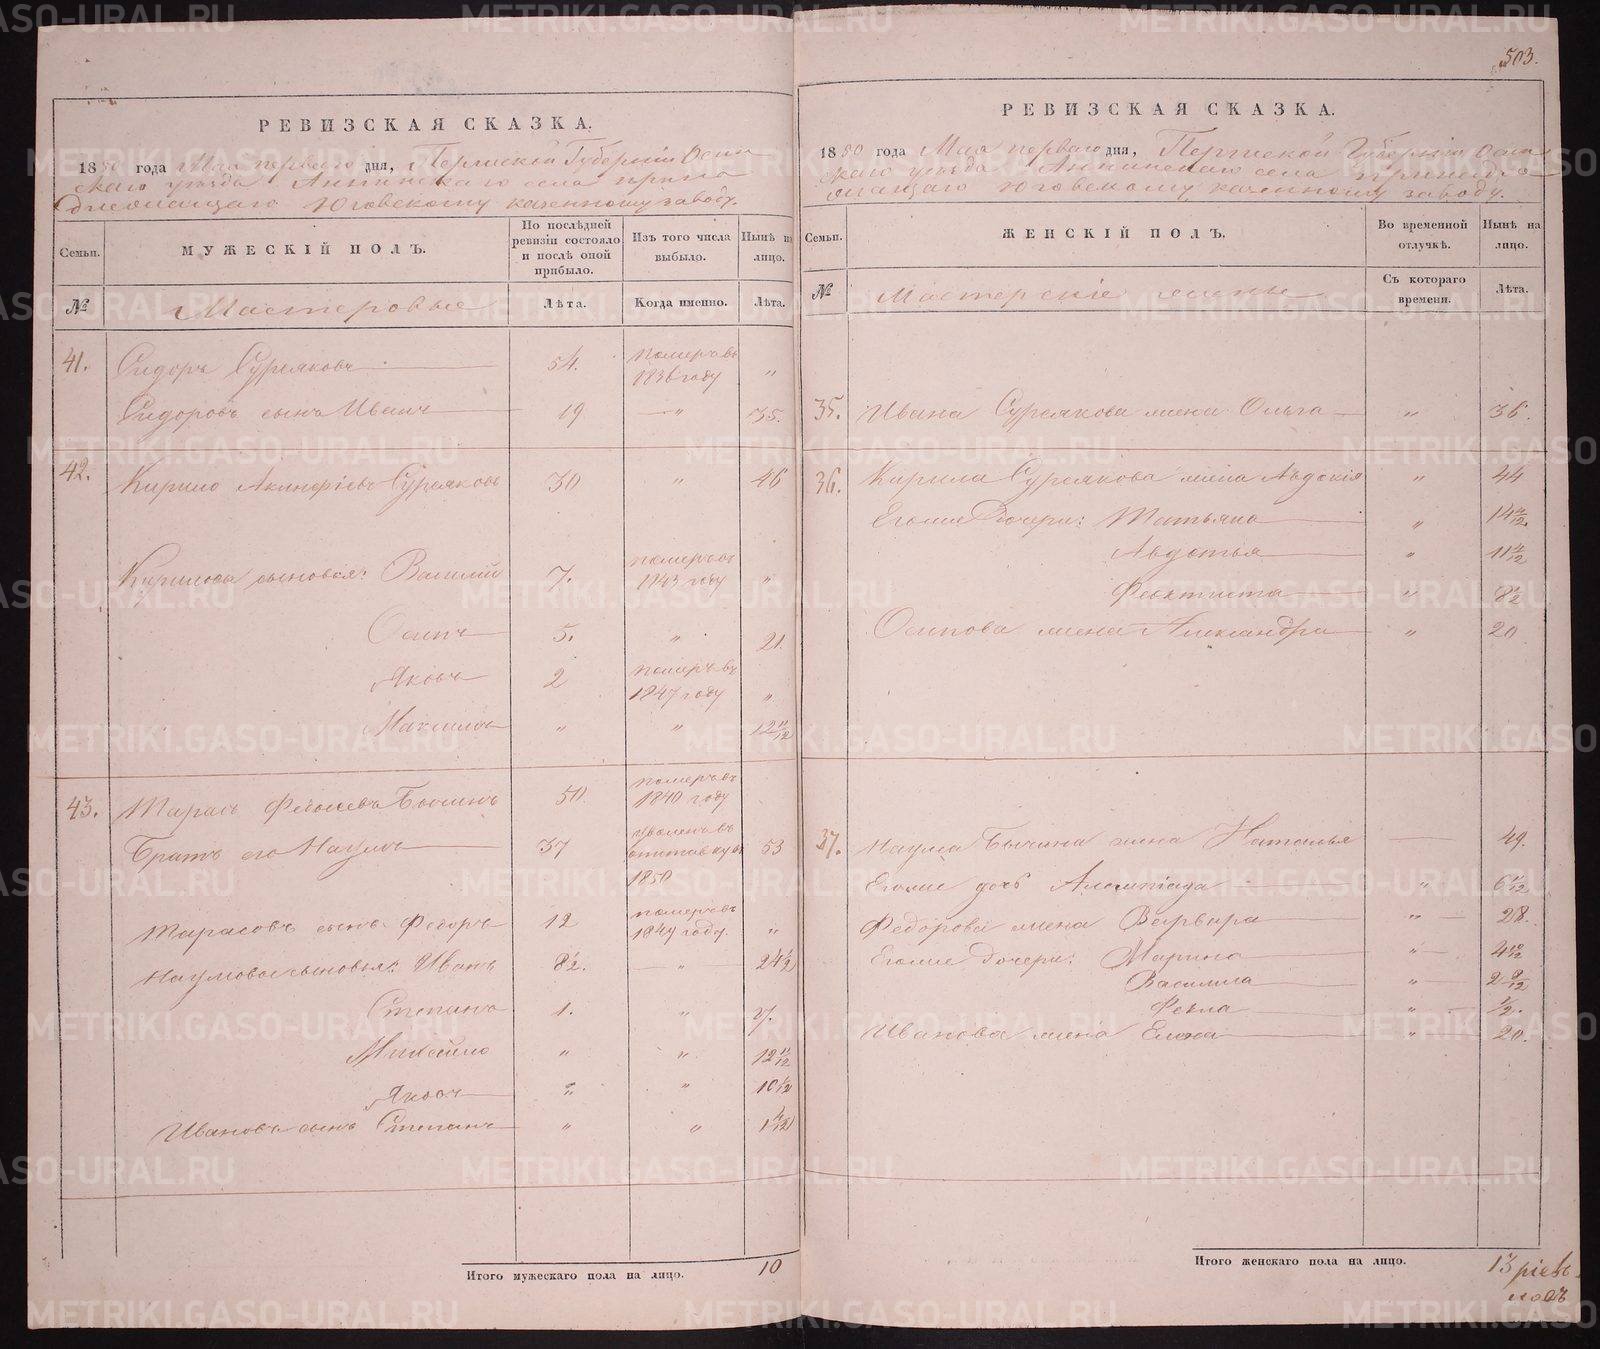 503.
РЕВИЗСКАЯ СКАЗКА.
1850 года Мая перваго дня, Пермской Губерніи Осин
скаго уѣзда Аннинскаго села прина
длежащаго Юговскому казенному заводу.
Семьи.
МУЖЕСКІЙ ПОЛЪ.
По послѣдней ревизіи состояло и послѣ оной прибыло.
Изъ того числа выбыло.
Нынѣ на лицо.
№
Мастеровые
Лѣта.
Когда именно.
Лѣта.
41. Сидоръ Сурсяковъ 54. померъ въ 1836 году „
Сидоровъ сынъ Иванъ 19 — „ 35.
42. Кирило Акинфіевъ Сурсяковъ 30 „ 46
Кирилова сыновья: Василій 7. померъ въ 1843 году „
Осипъ 5. „ 21.
Яковъ 2 померъ въ 1847 году „
Максимъ „ „ 12 11/12
43. Тарасъ Бычинъ 50 померъ въ 1840 году
Братъ его Наумъ 37 уволенъ въ отставку въ 1850 53
Тарасовъ сынъ Федоръ 12 померъ въ 1849 году. „
Наумова сыновья: Иванъ 8 1/2. — „ 24 1/2
Степанъ 1. „
Михайло „ „ 12 11/12
Яковъ „ „ 10 1/12
Ивановъ сынъ Степанъ „ „ 1 4/12
Итого мужескаго пола на лицо. 10
РЕВИЗСКАЯ СКАЗКА.
1850 года Мая перваго дня, Пермской Губерніи Осин
скаго уѣзда Аннинскаго села принадле
жащаго Юговскому казенному заводу.
Семьи.
ЖЕНСКІЙ ПОЛЪ.
Во временной отлучкѣ.
Нынѣ на лицо.
№
Мастерскіе жены
Съ котораго времени.
Лѣта.
35. Ивана Сурсякова жена Ольга „ 36.
36. Кирила Сурсякова жена Авдокія „ 44
Его же дочери: Татьяна „ 14 4/12.
Авдотья „ 11 4/12
Феоктиста „ 8 1/2
Осипова жена Александра „ 20
37. Наума Бычина жена Наталья — 49.
Его же дочь Алимпіада „ 6 1/12
Федорова жена Варвара „ 28.
Его же дочери: Марина „ 4 10/12
Василиса „ 2 9/12
Фекла „ 1/2.
Иванова жена Елена „ 20.
Итого женскаго пола на лицо. 13
METRIKI.GASO-URAL.RU